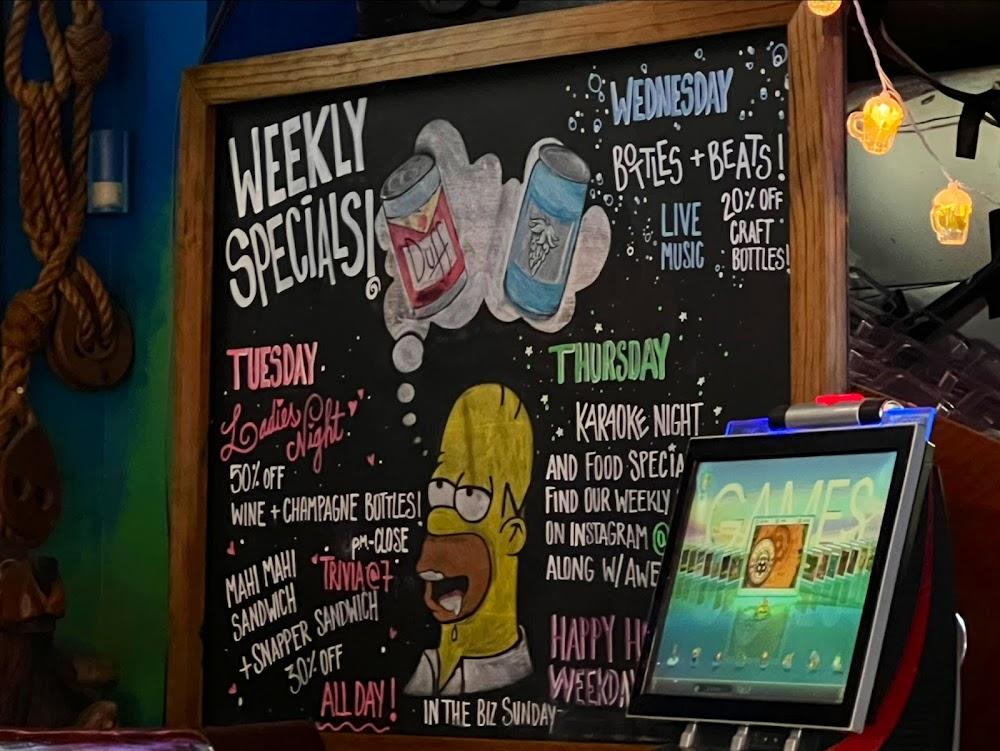 WEEKLY
SPECIALS!
Duff
TUESDAY
Ladies
Night
50% OFF
WINE + CHAMPAGNE BOTTLES!
pm-CLOSE
TRIVIA@7
MAHI MAHI
SANDWICH
+ SNAPPER SANDWICH
30% OFF
ALL DAY!
WEDNESDAY
BOTTLES + BEATS!
LIVE
MUSIC
20% OFF
CRAFT
BOTTLES!
THURSDAY
KARAOKE NIGHT
AND FOOD
FIND OUR WEEKLY
ON INSTAGRAM @
ALONG W/
HAPPY
IN THE BIZ SUNDAY
GAMES